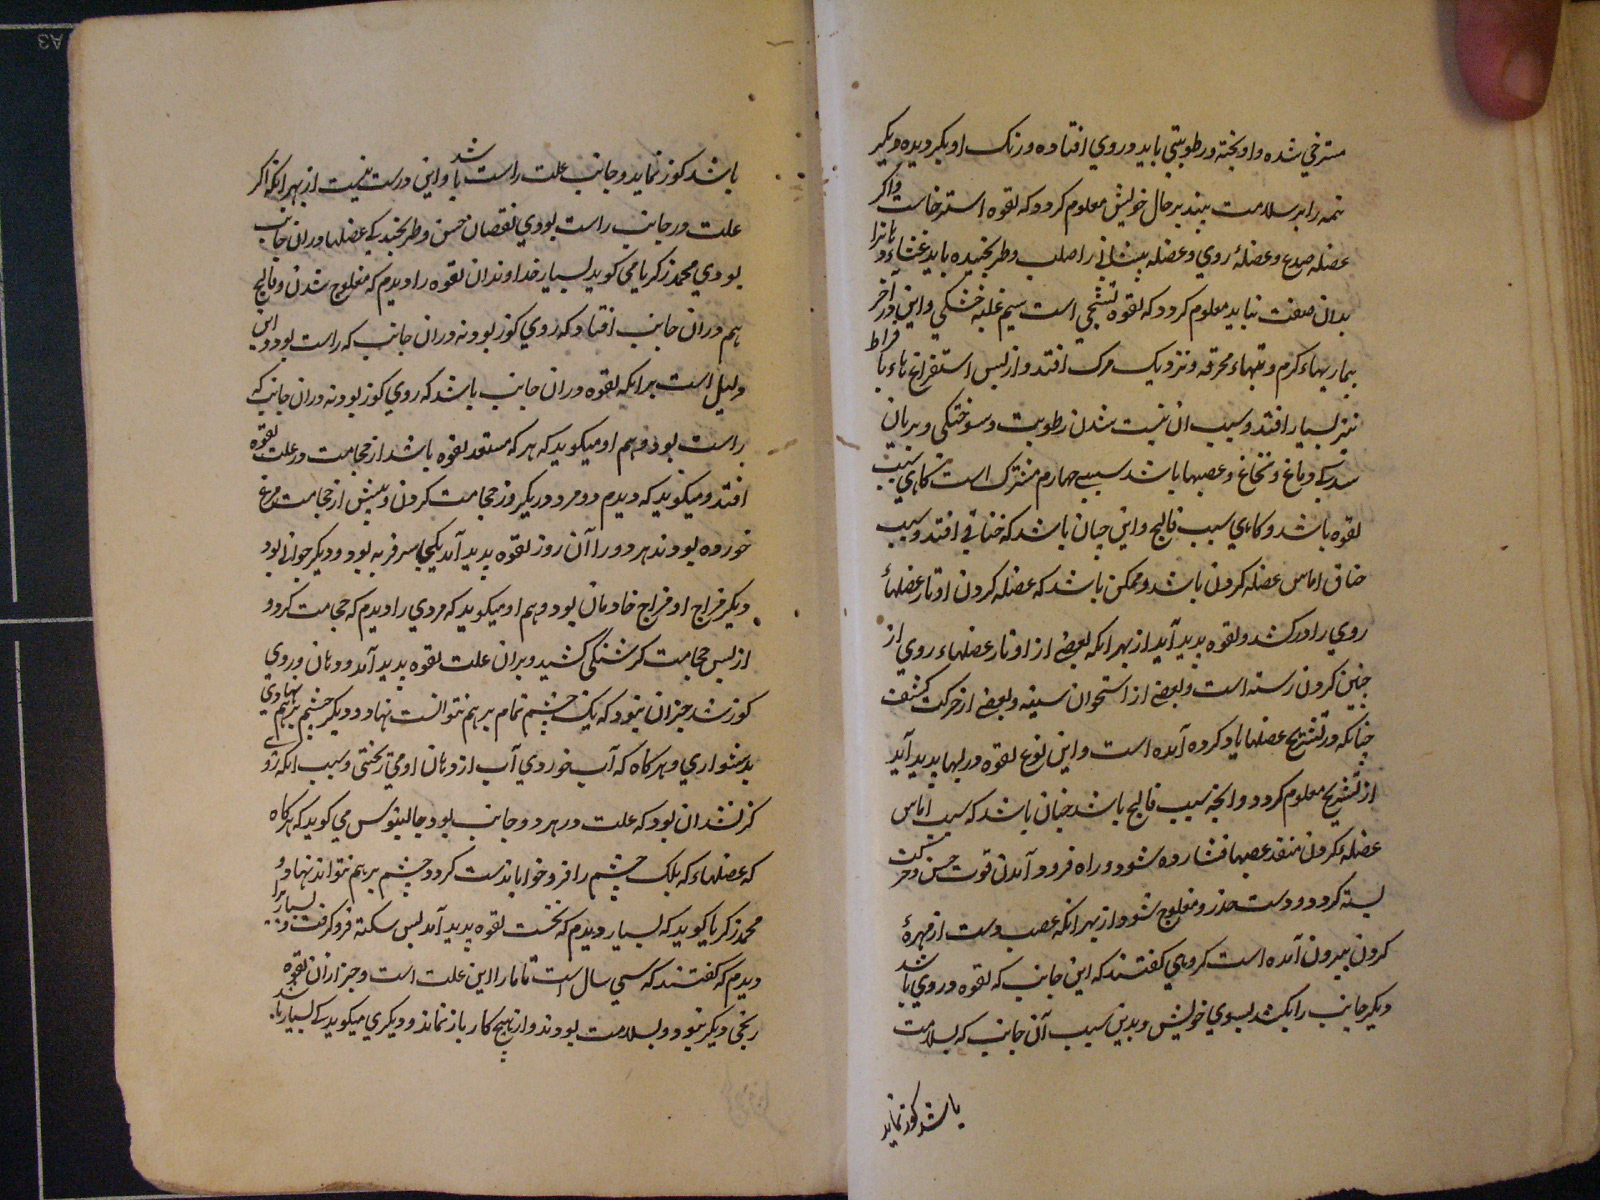 مسترخي شده واويخته ورطوبتي بايد در روي افتاده ورنك او بكرديده وديكر
نيمه را بر سلامت بيند بر حال خويش معلوم كردد كه لقوه استرخاست واكر
عضله صدغ وعضلهٔ روي وعضله پيشاني را صلب وطرنجيده يابد غشاء
بدان صفت نيابد معلوم كردد كه لقوه تشنجي است سيم غلبه خشكي واين در آخر
بيماريهاء كرم وتبهاء محرقه ونزديك مرك افتد واز پس استفراغ هاء با فراط
نيز بسيار افتد وسبب ان نيست شدن رطوبت وسوختكي وبريان
شدن دماغ ونخاغ وعصبها باشد سبب چهارم مشترك است كاهي سبب
لقوه باشد وكاهي سبب فالج واين چنان باشد كه خناقي افتد وسبب
خناق اماس عضله كردن باشد وممكن باشد كه عضله كردن اوتار عضلهاٴ
روي را دركشد ولقوه پديد آيد از بهر انكه بعضي از اوتار عضلهاء روي از
چنبر كردن رسته است وبعضي از استخوان سينه وبعضي از خرك كتف
چنانكه در تشريح عضلها ياد كرده آمده است واين نوع لقوه در لبها پديد آيد
از تشريح معلوم كردد وانچه سبب فالج باشد چنان باشد كه سبب اماس
عضله كردن منفذ عصبها فشارده شود وراه فرود آمدن قوت حس وحركت
بسته كردد ودست خدر ومفلوج شود از بهر انكه عصب دست از مهرهٔ
كردن بيرون آمده است كروهي كفتند كه اين جانب كه لقوه در روي باشد
ديكر جانب را بكشد بسوي خويش وبدين سبب آن جانب كه بسلامت
باشد كوز نمايد
باشد كوز نمايد وجانب علت راست باشد واين درست نيست از بهر انكه اكر
علت در جانب راست بودي نقصان حس وطرنجيدكي عضلها در ان جانب
بودي محمد زكريا مي كويد بسيار خداوندان لقوه را ديدم كه مفلوج شدن وفالج
هم در ان جانب افتاد كه روي كوز بود نه در ان جانب كه راست بود واين
دليل است برانكه لقوه در ان جانب باشد كه روي كوز بود نه در ان جانب كه
راست بود وهم او ميكويد كه هر كه مستعد لقوه باشد از حجامت در علت لقوه
افتد وميكويد كه ديدم دو مرد در يكروز حجامت كردن وپيش از حجامت مرغ
خورده بودند هر دو را آن روز لقوه پديد آمد يكي پسر فربه بود وديكر جوان بود
ديكر مزاج او مزاج خادمان بود وهم او ميكويد كه مردي را ديدم كه حجامت كرد و
از پس حجامت كرسنكي كشيد وبران علت لقوه پديد آمد ودهان وروي
كوز شد جز ان نبود كه يك چشم تمام بر هم نتوانست نهاد وديكر چشم بر هم نهادي
بدشواري وهركاه كه آب خوردي آب از دهان او مي ريختي وسبب انكه روي
كژ نشد ان بود كه علت در هر دو جانب بود جالينوس مي كويد كه هركاه
كه عضلهاء كه پلك چشم را فرو خواباند ست كردد چشم بر هم نتواند نهاد و
محمد زكريا كويد كه بسيار ديدم كه نخست لقوه پديد آمد پس سكته فرو كرفت وبسيار را
ديدم كه كفتند كه سي سال است تا ما را اين علت است وجز از ان لقوه
رنجي ديكر نبود وبسلامت بودند واز هيچ كار باز نماند وديكري ميكويد كه بسيار باشد